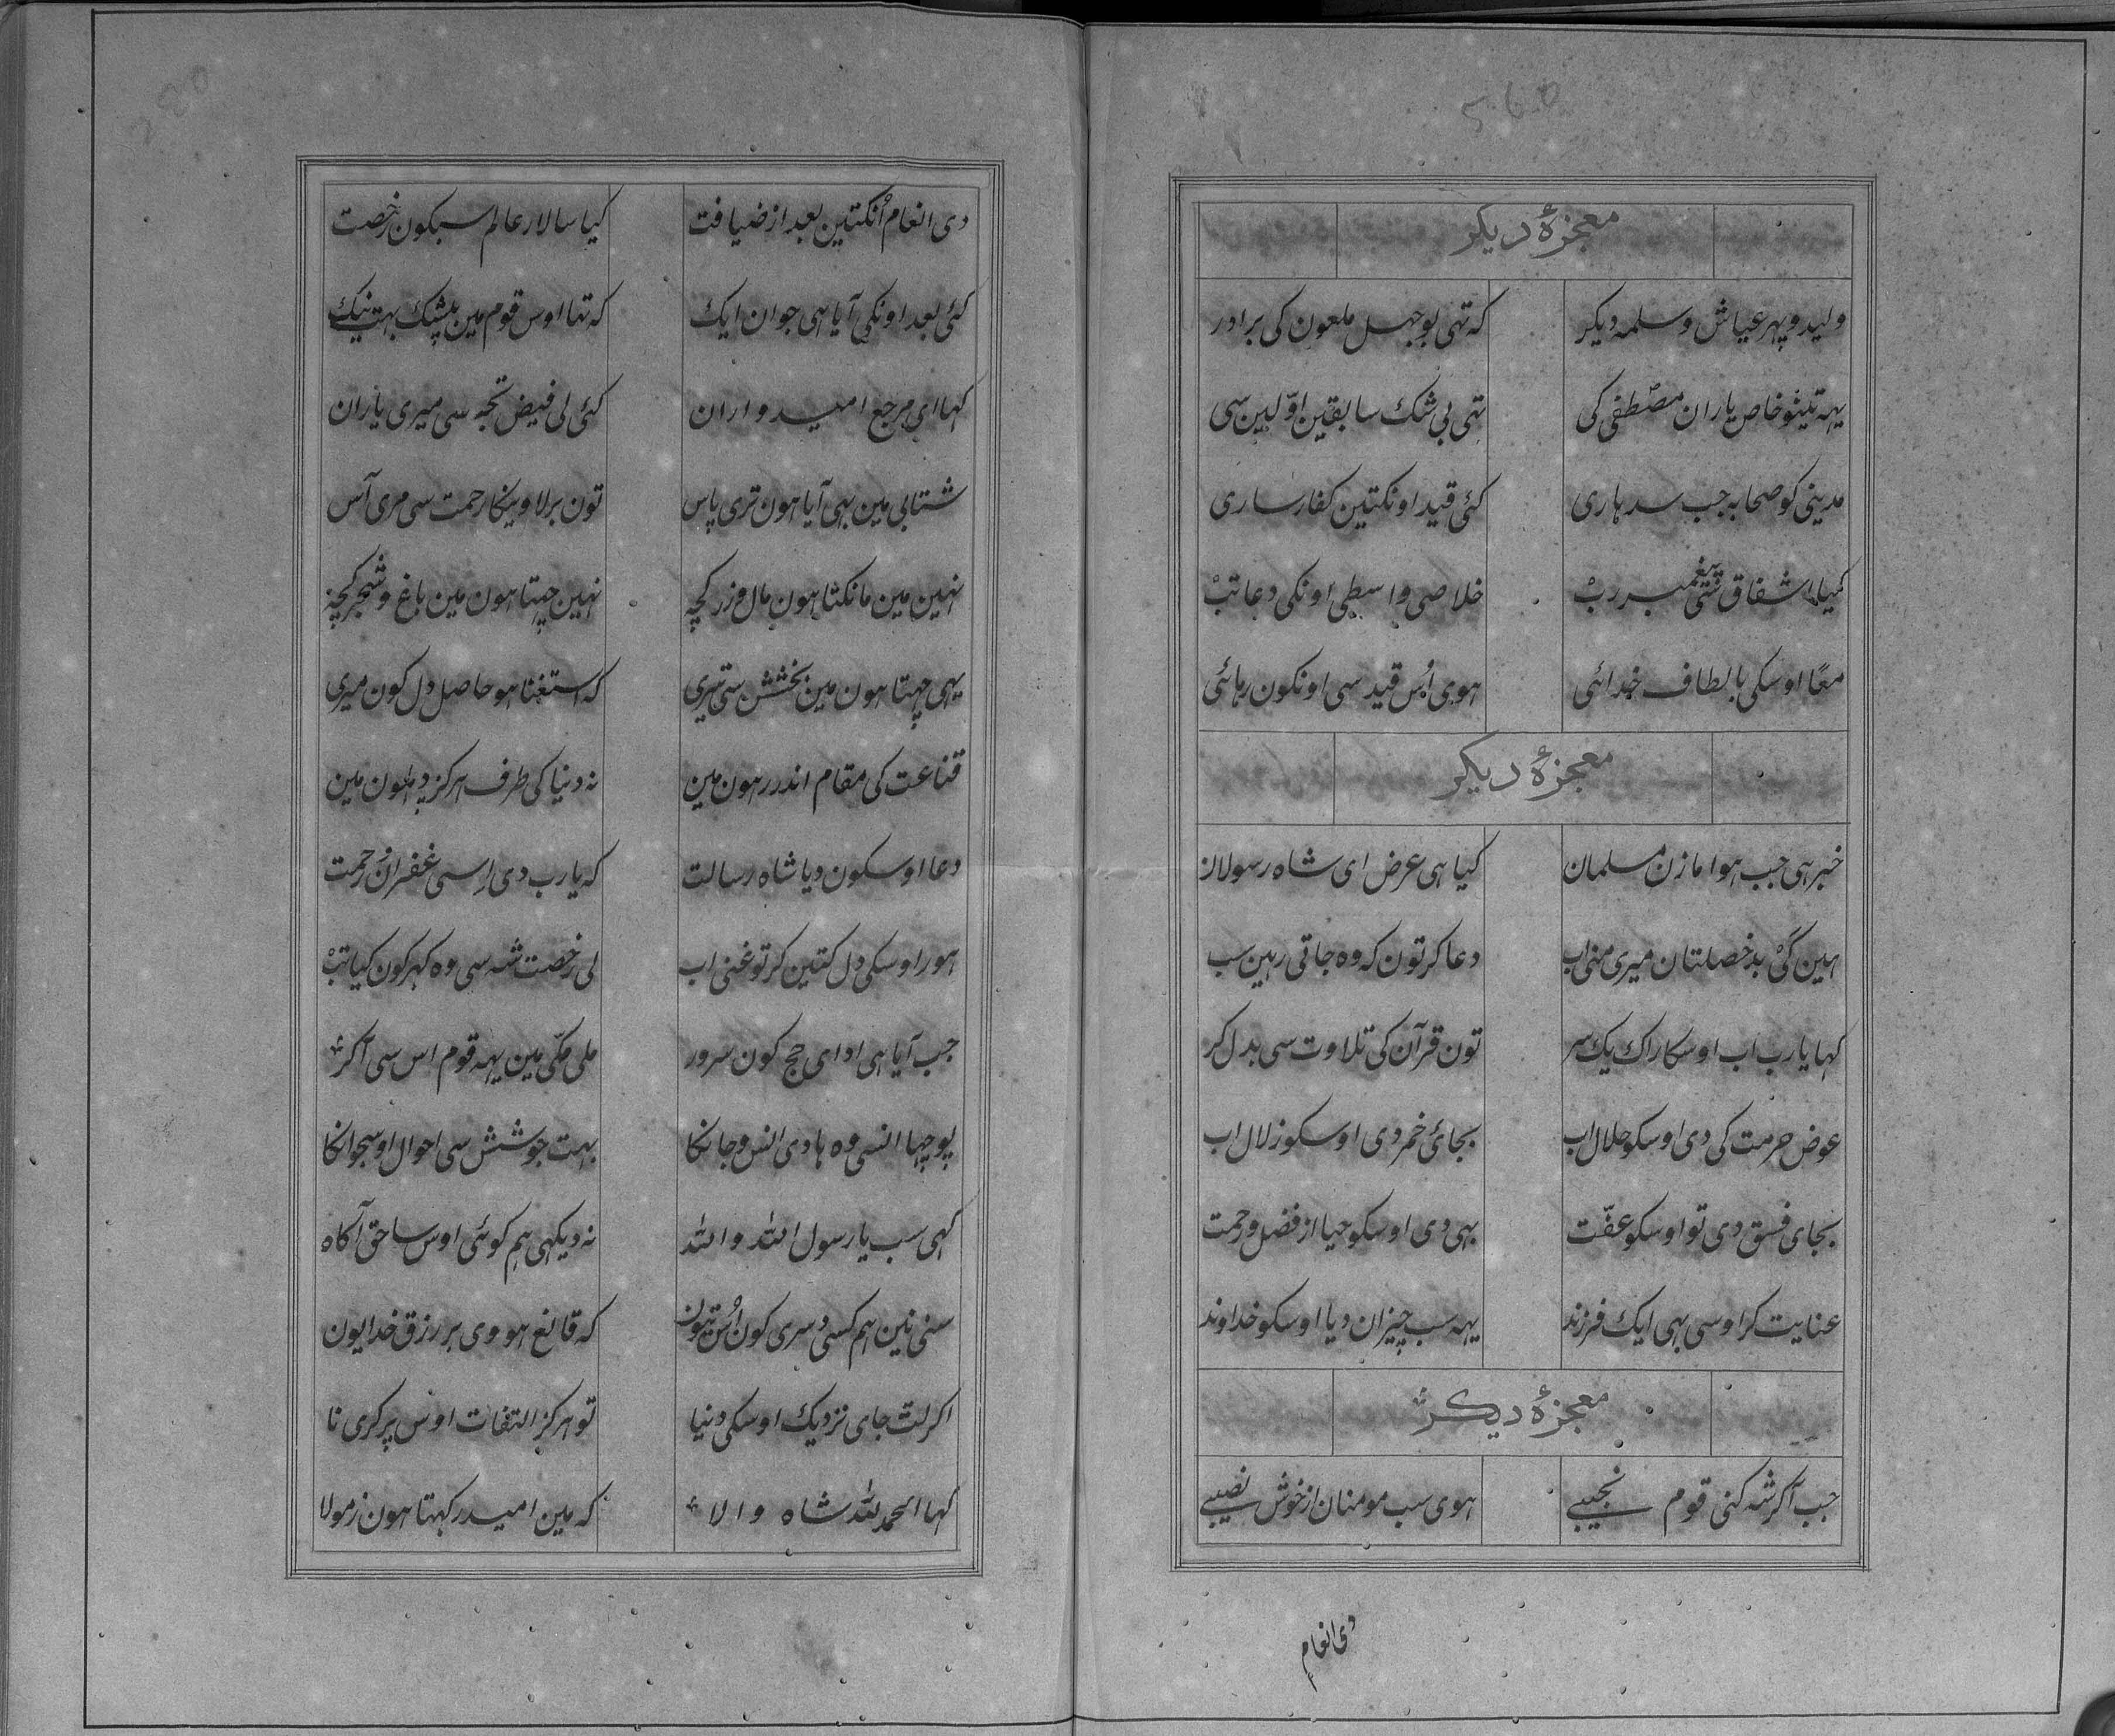 معجزهٔ دیکر
ولید و پهر عیاش و سلمه دیکر کہ تہی بوجہل ملعون کی برادر
یہہ تینو خاص یاران مصطفی کی تہی بی شک سابقین اوّلین سی
مدینی کو صحابہ جب سدہاری کئی قید اونکتین کفار ساری
کیا اشفاق ستی پیغمبر ربْ خلاصی واسطی اونکی دعا تبْ
معًا اوسکی بالطاف خدائی ہوی اُس قید سی اونکون رہائی
معجزهٔ دیکر
خبر ہی جب ہوا مازن مسلمان کیا ہی عرض ای شاہ رسولان
ہین کَی بد خصلتان میری منی اب دعا کر تون کہ وہ جاتی رہین سب
کہا یا رب اب اوسکا راک یک سر تون قرآن کی تلاوت سی بدل کر
عوض حرمت کی دی اوسکو حلال اب بجائی خمر دی اوسکو زلال اب
بجای فسق دی تو اوسکو عفّت بہی دی اوسکو حیا از فضل و رحمت
عنایت کر اوسی بہی ایک فرزند یہہ سب چیزان دیا اوسکو خداوند
معجزهٔ دیکر
جب آکر شہ کنی قوم نجیبی ہوی سب مومنان از خوش نصیبی
دی انعام
دی انعام اُنکتین بعد از ضیافت کیا سالار عالم سبکون رخصت
کئی بعد اونکی آیا ہی جوان ایک کہ تہا اوس قوم مین بیشک بہت نیک
کہا ای مرجع امیدواران کئی لی فیض تجہ سی میری یاران
شتابی مین بہی آیا ہون تری پاس تون برلاویکا رحمت سی مری آس
نہین مین مانکتا ہون مال و زر کچہ نہین چہتا ہون مین باغ و شجر کچہ
یہی چہتا ہون مین بخشش ستی تیری کہ استغنا ہو حاصل دل کون میری
قناعت کی مقام اندر رہون مین نہ دنیا کی طرف ہرکز چہلون مین
دعا اوسکون دیا شاہ رسالت کہ یا رب دی اِسی غفران و رحمت
ہور اوسکی دل کتین کر تو غنی اب لی رخصت شہ سی وہ کہر کون کیا تبْ
جب آیا ہی ادای حج کون سرور ملی مکّی مین یہہ قوم اس سی آکر
پوچہا انسی وہ ہادی انس و جانکا بہت جوشش سی احوال اوس جوانکا
کہی سب یا رسول اللہ واللہ نہ دیکہی ہم کوئی اوس سا حق آکاہ
سنی نین ہم کسی دسری کون اُس تہون کہ قانع ہووی بر رزق خدا یون
اکر لٹ جای نزدیک اوسکی دنیا تو ہرکز التفات اوس پر کری نا
کہا الحمد للہ شاہ والا کہ مین امید رکہتا ہون ز مولا